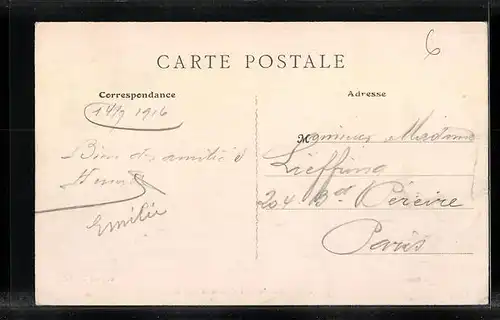 6
CARTE POSTALE
Correspondance
14/7 1916
Bien des amitiés
Emilie
Adresse
Monsieur Madame
Lieffring
204 Bd Péreire
Paris